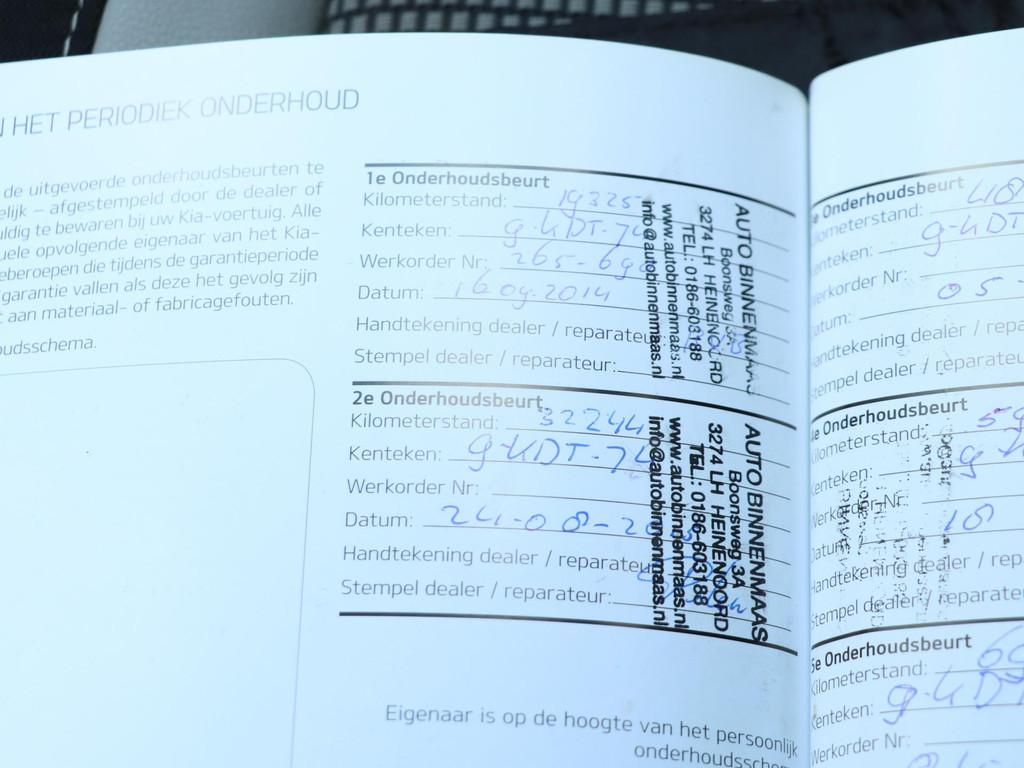 HET PERIODIEK ONDERHOUD
de uitgevoerde onderhoudsbeurten te
elijk – afgestempeld door de dealer of
uldig te bewaren bij uw Kia-voertuig. Alle
uele opvolgende eigenaar van het Kia-
eberoepen die tijdens de garantieperiode
garantie vallen als deze het gevolg zijn
aan materiaal- of fabricagefouten.
oudsschema.
1e Onderhoudsbeurt
Kilometerstand: 19325
Kenteken: 9-KDT-74
Werkorder Nr: 265-690
Datum: 16 09-2014
Handtekening dealer / reparateur
Stempel dealer / reparateur:
AUTO BINNENMAAS
Boonsweg 3A
3274 LH HEINENOORD
TEL.: 0186-603188
www.autobinnenmaas.nl
info@autobinnenmaas.nl
2e Onderhoudsbeurt
Kilometerstand: 32244
Kenteken: 9-KDT-74
Werkorder Nr:
Datum: 24-08-20
Handtekening dealer / reparateur
Stempel dealer / reparateur:
AUTO BINNENMAAS
Boonsweg 3A
3274 LH HEINENOORD
TEL.: 0186-603188
www.autobinnenmaas.nl
info@autobinnenmaas.nl
Eigenaar is op de hoogte van het persoonlijk
onderhoudsschem
e Onderhoudsbeurt
ilometerstand: 48
enteken: 9-KDT
erkorder Nr:
atum: 05-
andtekening dealer / repa
tempel dealer / reparate
e Onderhoudsbeurt
ilometerstand: 59
enteken: 9-K
erkorder Nr:
Datum: 18
Handtekening dealer / rep
Stempel dealer / reparate
5e Onderhoudsbeurt
Kilometerstand: 60
Kenteken: 9-KDT
Werkorder Nr: